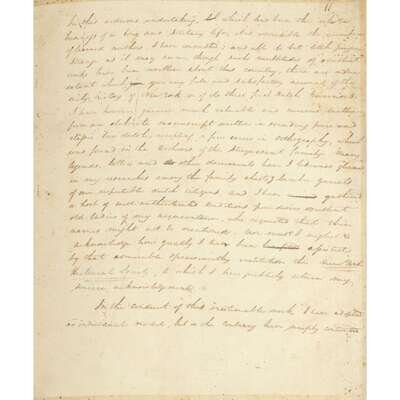 In this arduous undertaking, which has been the whole
business of a long and solitary life, I have consulted
learned authors and all to but little purpose.
Strange as it may seem though such multitudes of excellent
works have been written about this country, there are none
extant which gave any full and satisfactory account of the
early history of New York or of its three first Dutch Governors.
I have however gained much valuable and curious matter
from an elaborate manuscript written in exceeding pure and
classic low dutch, excepting a few errors in orthography, which
was found in the archives of the Stuyvesant family. Many
legends, letters and other documents have I likewise gleaned
in my researches among the family chests & lumber garrets
of our respectable dutch citizens and I have gathered
a host of well authenticated traditions from divers excellent
old ladies of my acquaintance, who requested that their
names might not be mentioned. Nor must I neglect to
acknowledge how greatly I have been assisted
by that admirable & praiseworthy institution the New York
Historical Society, to which I here publicly return my
sincere acknowledgments.
In the conduct of this inestimable work I have adopted
no individual model, but on the contrary have simply contented